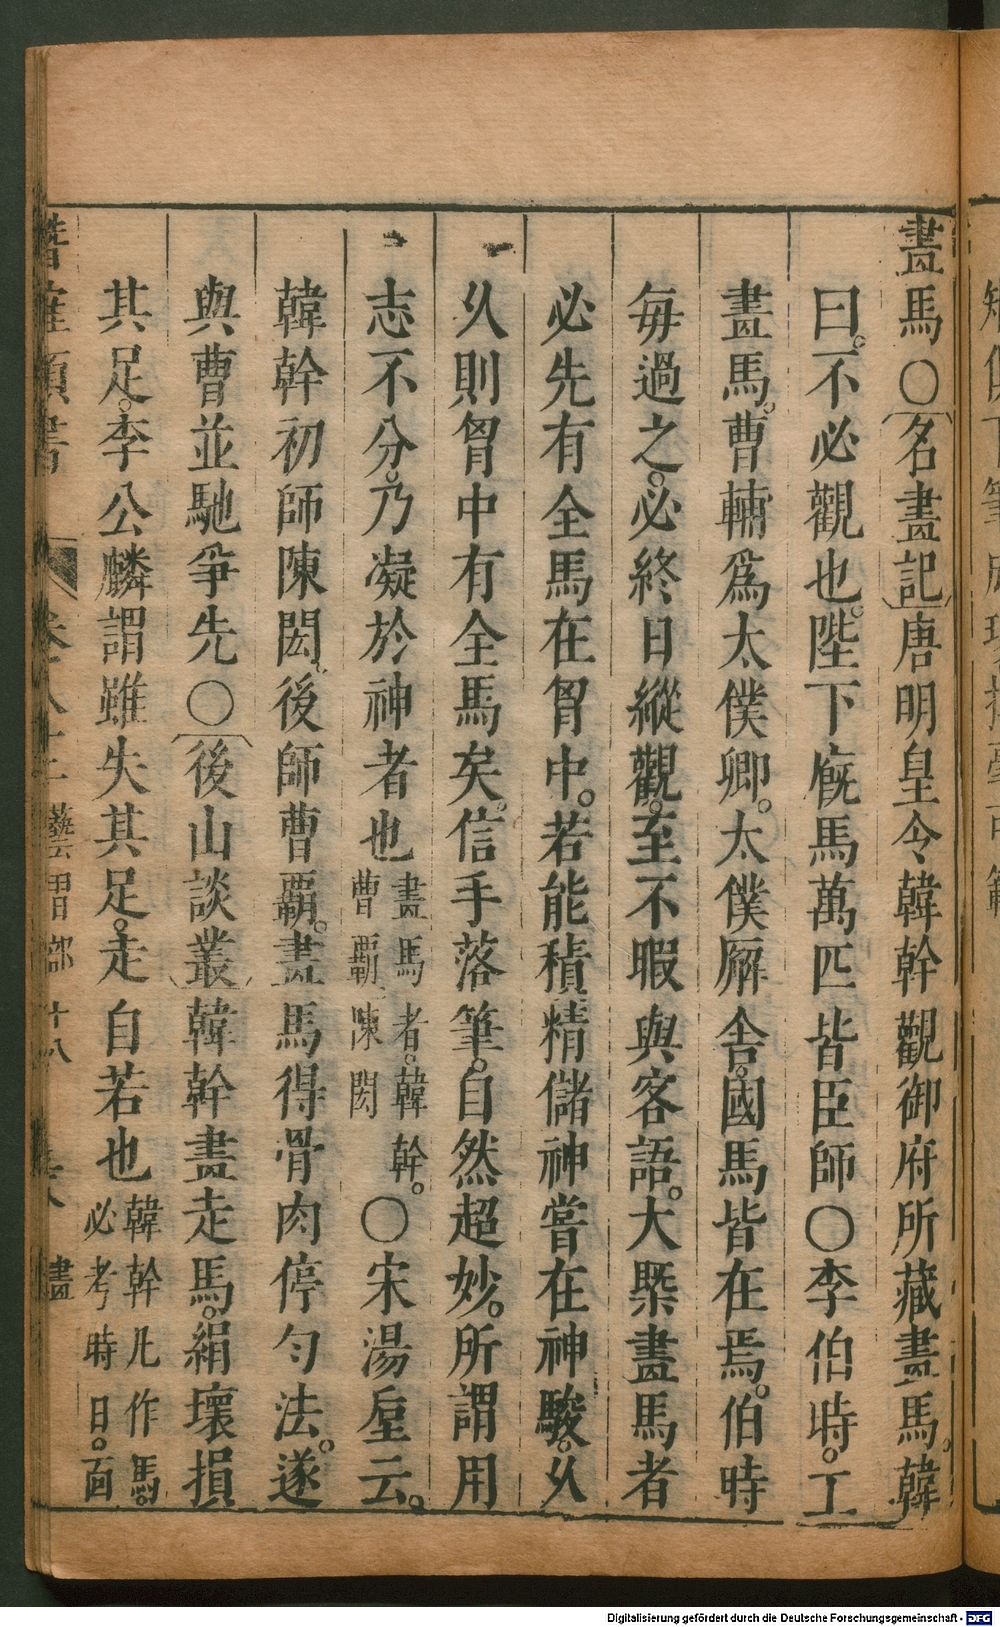 畫馬○名畫記唐明皇令韓幹觀御府所藏畫馬。韓
曰。不必觀也。陛下廐馬萬匹皆臣師○李伯時。工
畫馬。曹輔爲太僕卿。太僕廨舍。國馬皆在焉。伯時
每過之。必終日縱觀。至不暇與客語。大槩畫馬者
必先有全馬在胷中。若能積精儲神嘗在神駿。乆
乆則胷中有全馬矣。信手落筆。自然超妙。所謂用
志不分。乃凝於神者也畫馬者。韓幹。曹霸陳閎○宋湯垕云。
韓幹初師陳閎。後師曹霸。畫馬得骨肉停勻法。遂
與曹並馳爭先○後山談叢韓幹畫走馬。絹壞損
其足。李公麟謂雖失其足。走自若也韓幹凡作馬。必考時日。面
藝習部 十八 畫
Digitalisierung gefördert durch die Deutsche Forschungsgemeinschaft - DFG